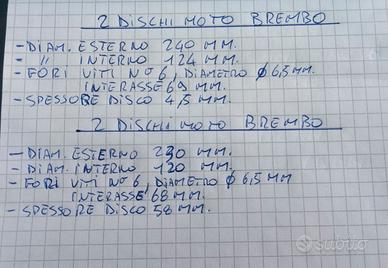 2 DISCHI MOTO BREMBO
- DIAM. ESTERNO 240 MM.
- " INTERNO 124 MM.
- FORI VITI N° 6, DIAMETRO ϕ 6,5 MM.
INTERASSE 69 MM.
- SPESSORE DISCO 4,5 MM.
2 DISCHI MOTO BREMBO
- DIAM. ESTERNO 230 MM.
- DIAM. INTERNO 120 MM.
- FORI VITI N° 6, DIAMETRO ϕ 6,5 MM
INTERASSE 68 MM.
- SPESSORE DISCO 58 MM.
subito